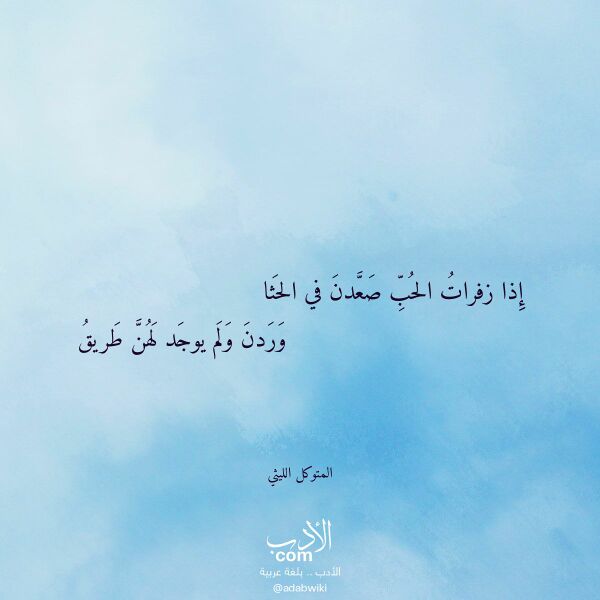 إِذا زفراتُ الحُبِّ صَعَّدنَ في الحَثا
وَرَدنَ وَلَم يوجَد لَهُنَّ طَريقُ
المتوكل الليثي
الأدب
com
الأدب .. بلغة عربية
@adabwiki